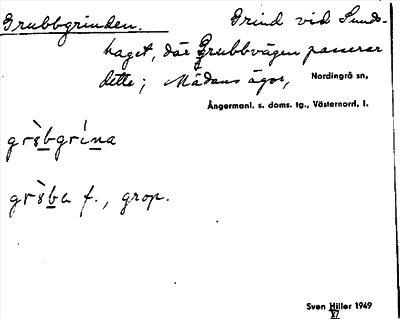 Grubbgrinden. Grind vid Sunds-
haget, där Grubbvägen passerar
detta; Mädans ägor, Nordingrå sn,
Ångermanl. s. doms. tg., Västernord. l.
grò̀bgrína
grò̀ba f., grop.
Sven Hiller 1949